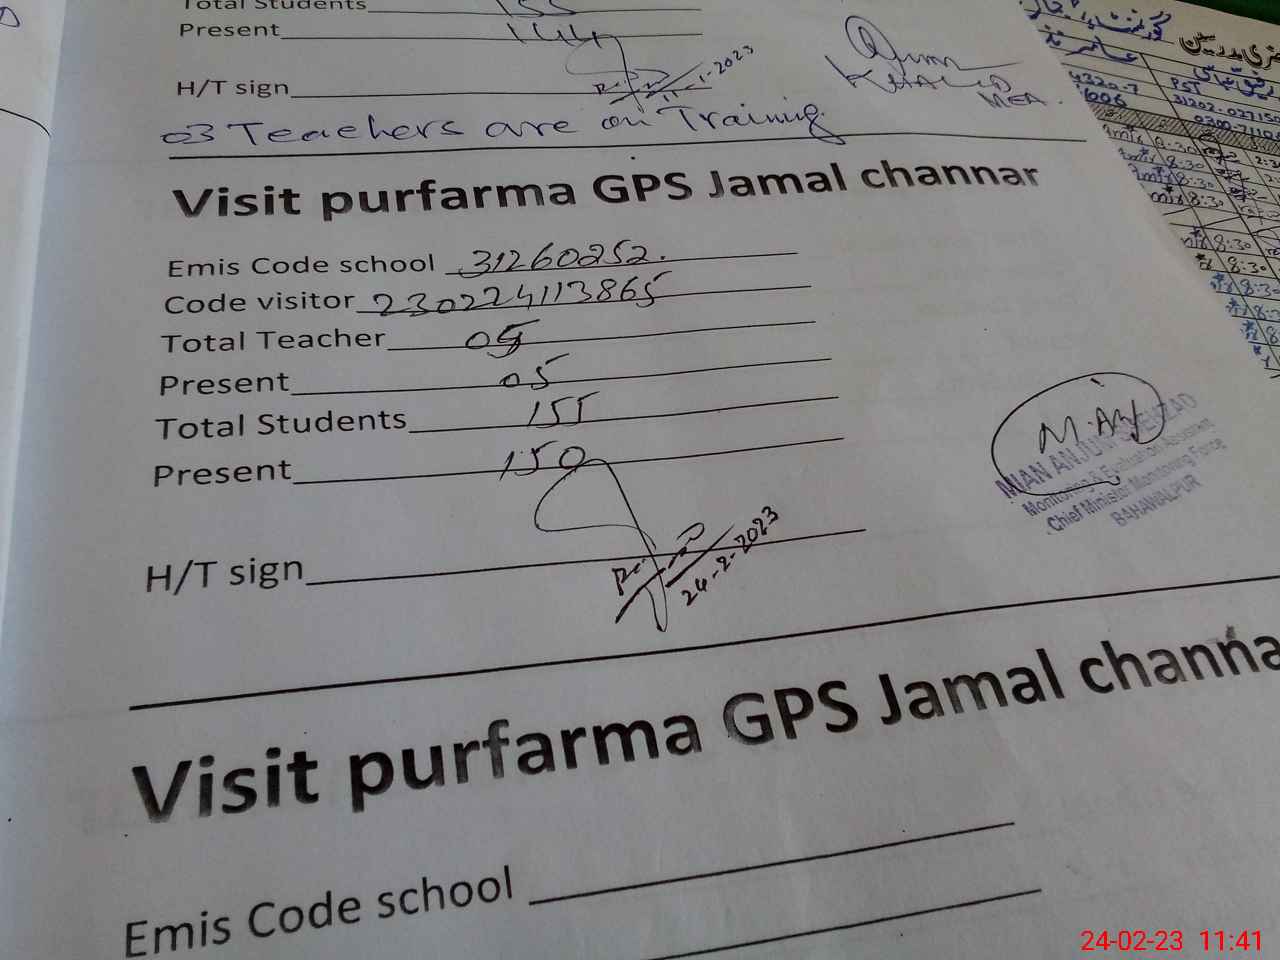 Total Students 155
Present 144
H/T sign 11-1-2023
KHALID
MEA.
03 Teachers are on Training.
Visit purfarma GPS Jamal channar
Emis Code school 31260252.
Code visitor 230224113865
Total Teacher 05
Present 05
Total Students 155
Present 150
H/T sign 24-2-2023
MIAN ANJUM SHEHZAD
Monitoring & Evaluation Assistant
Chief Minister Monitoring Force
BAHAWALPUR
Visit purfarma GPS Jamal channa
Emis Code school
PST
8:30
8:30
8:30
8:30
8:30
24-02-23 11:41